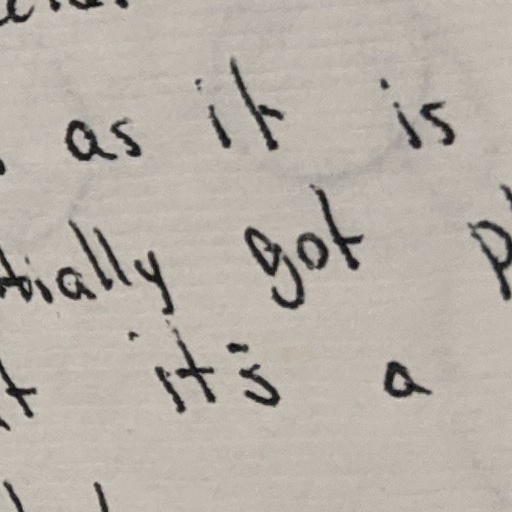 as it is
tially got p
t it's a